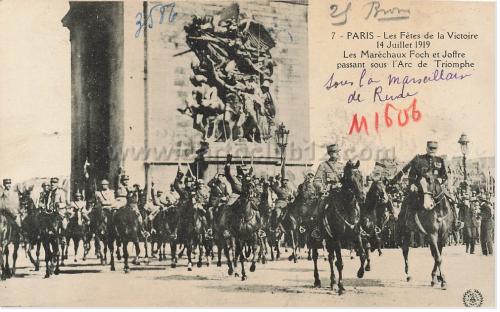 25 Bron
3586
7 - PARIS - Les Fêtes de la Victoire
14 Juillet 1919
Les Maréchaux Foch et Joffre
passant sous l'Arc de Triomphe
sous la marseillaise
de Rude
M1606